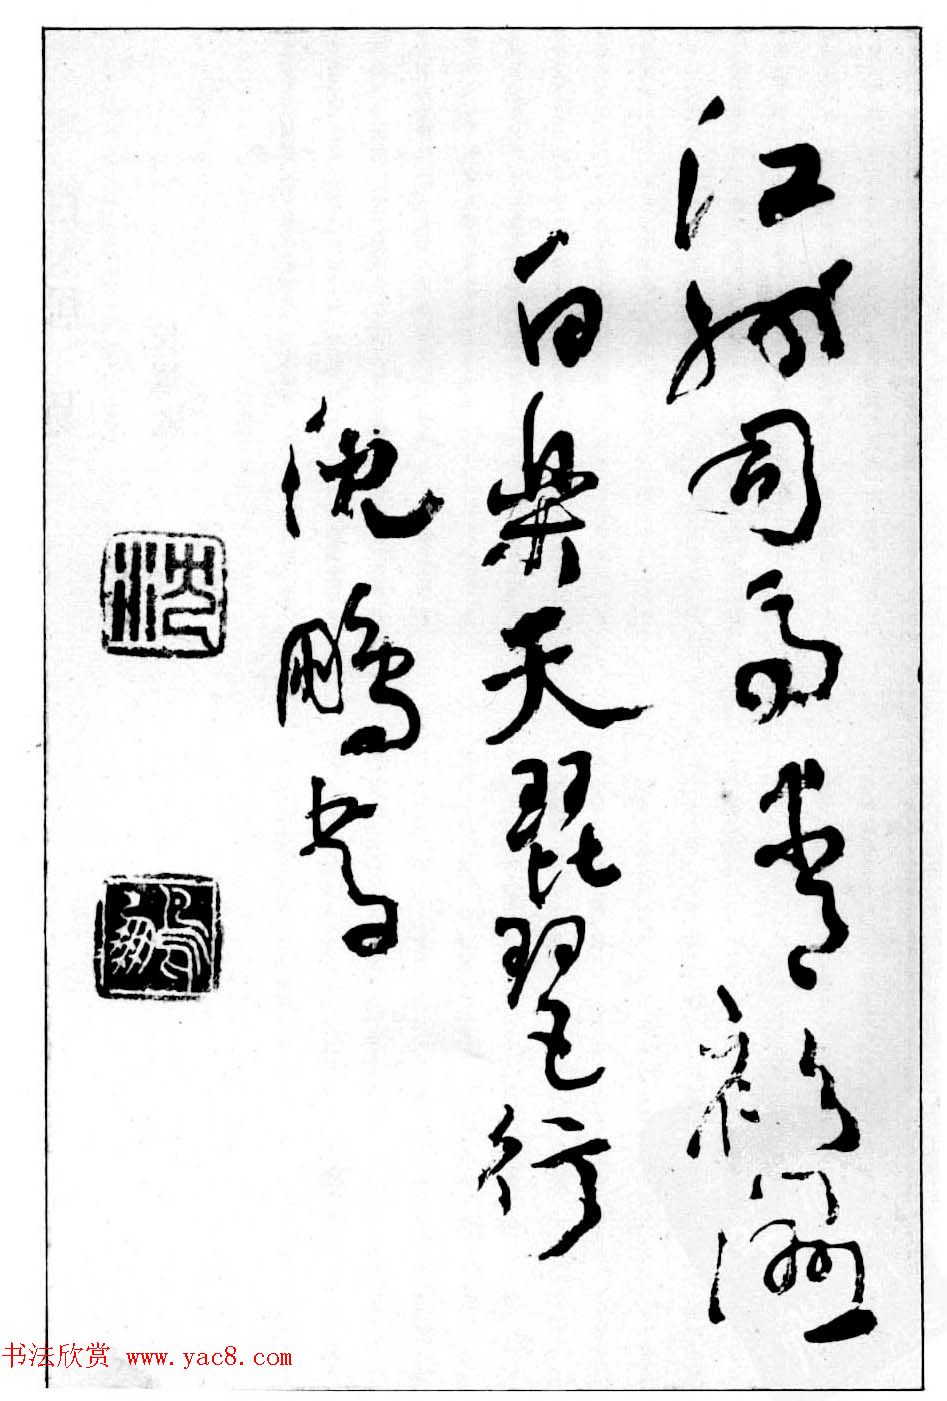 江州司马青衫湿
白乐天琵琶行
沈鹏书
沈
鹏
书法欣赏 www.yac8.com